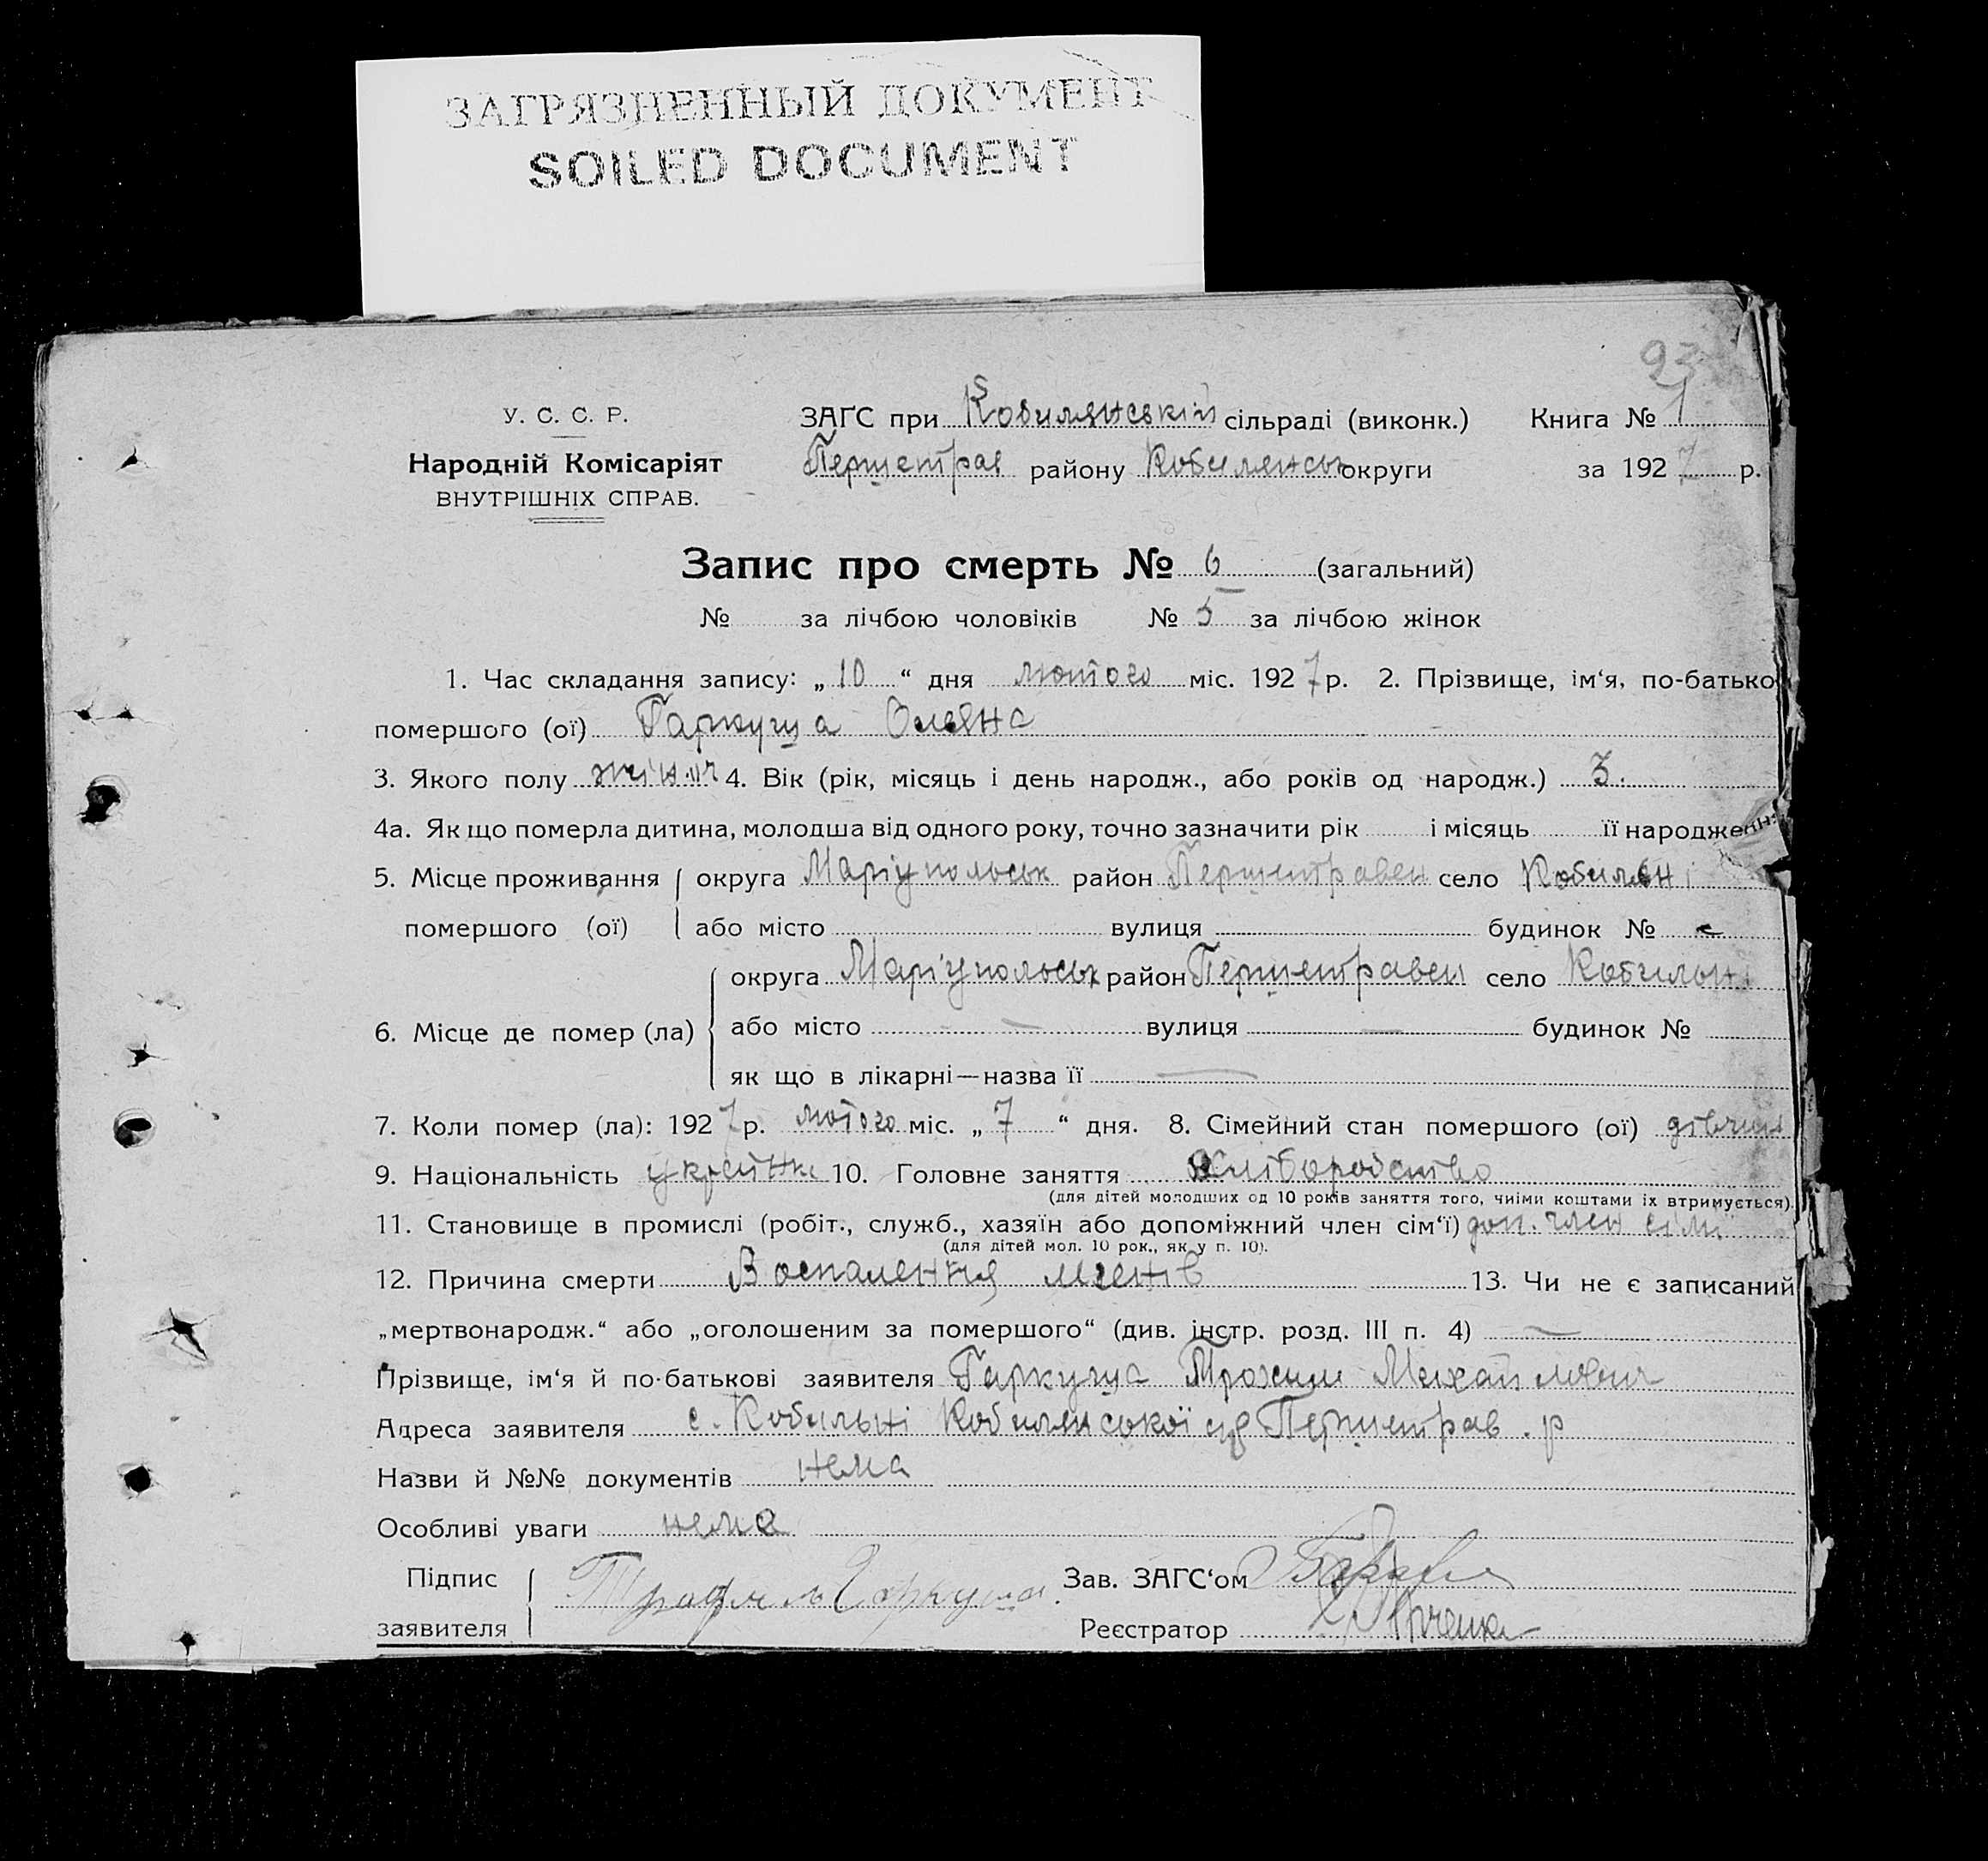 ЗАГРЯЗНЕННЫЙ ДОКУМЕНТ
SOILED DOCUMENT
93
У. С. С. Р.
Народній Комісаріят
ВНУТРІШНІХ СПРАВ.
ЗАГС при Кобилянський сільраді (виконк.) Книга № 1
Першетрав району Кобиленськ округи за 1927 р.
Запис про смерть № 6 (загальний)
№ за лічбою чоловіків № 5 за лічбою жінок
1. Час складання запису: „ 10 “ дня лютого міс. 1927 р. 2. Прізвище, ім‘я, по-батько
помершого (ої) Гаркуша Олена
3. Якого полу 4. Вік (рік, місяць і день народж., або років од народж.) 3.
4а. Як що померла дитина, молодша від одного року, точно зазначити рік і місяць її народженн
5. Місце проживання округа Маріупольськ район Першетравен село Кобильні
помершого (ої) або місто вулиця будинок №
6. Місце де помер (ла) округа Маріупольськ район Першетравен село Кобильні
або місто — вулиця — будинок №
як що в лікарні—назва її —
7. Коли помер (ла): 1927 р. лютого міс. „ 7 “ дня. 8. Сімейний стан помершого (ої) дівчина
9. Національність українк 10. Головне заняття хліборобство
(для дітей молодших од 10 років заняття того, чиїми коштами їх втримується).
11. Становище в промислі (робіт., служб., хазяїн або допоміжний член сім‘ї) доп. член сімї
(для дітей мол. 10 рок., як у п. 10).
12. Причина смерти Воспаления 13. Чи не є записаний
„мертвонародж.“ або „оголошеним за помершого“ (див. інстр. розд. III п. 4) —
Прізвище, ім‘я й по-батькові заявителя Гаркуша Трохим Михайлович
Адреса заявителя с. Кобильні Кобиленської с/р Першетрав. р
Назви й №№ документів нема
Особливі уваги нема
Підпис заявителя Трофим Гаркуша.
Зав. ЗАГС‘ом
Реєстратор